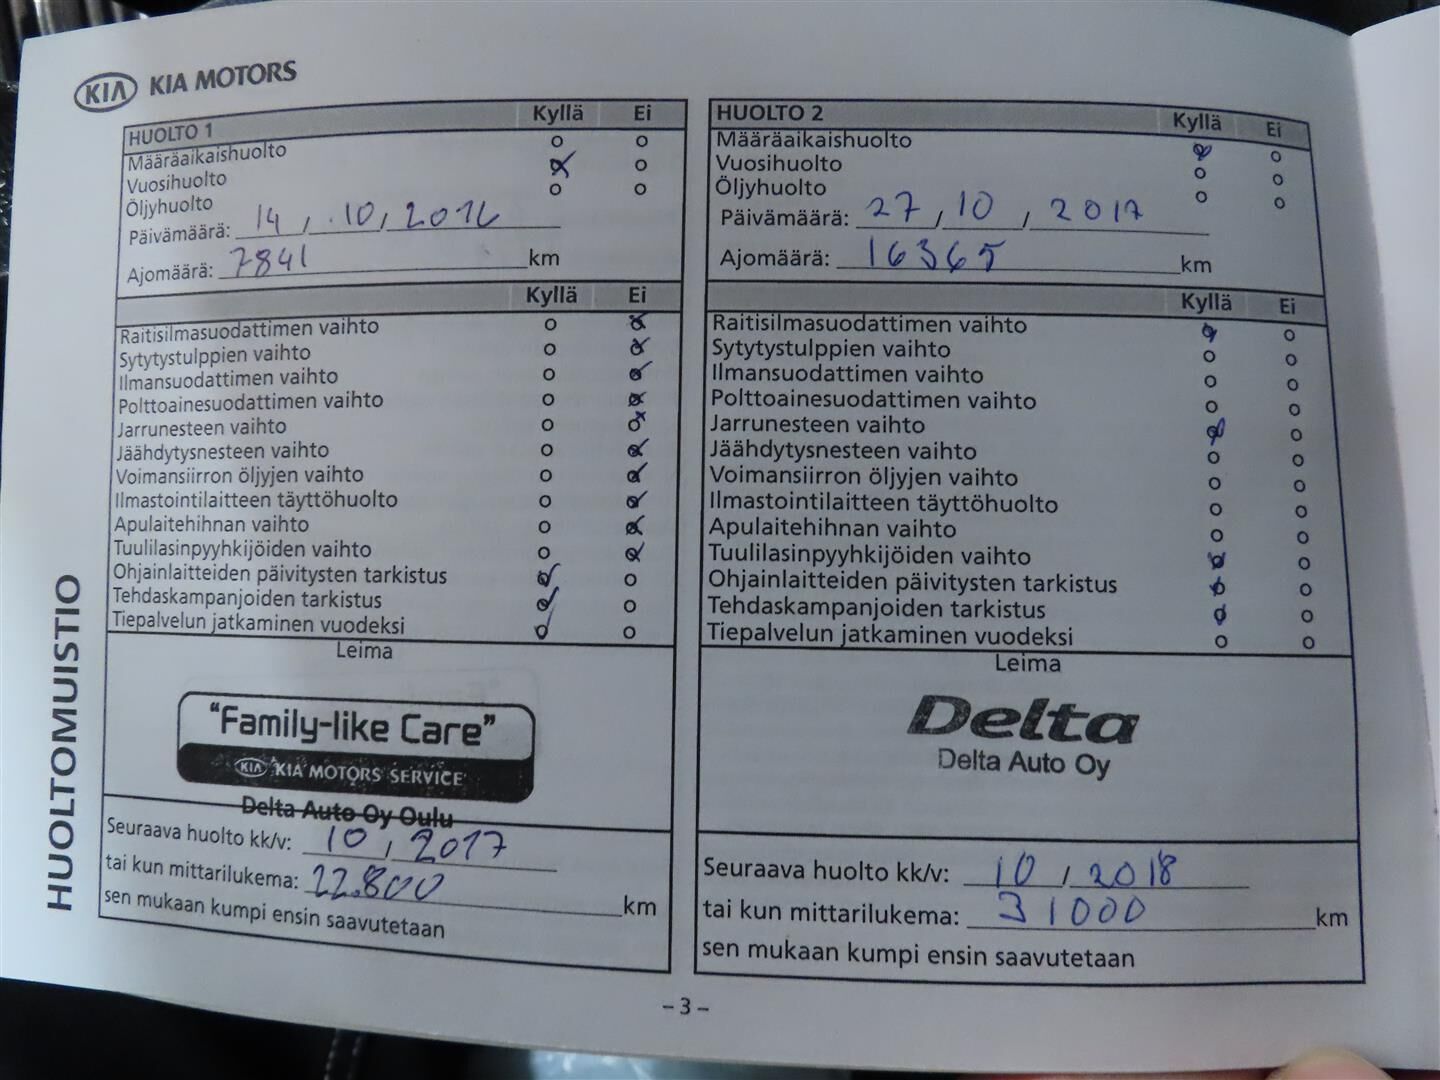 KIA KIA MOTORS
HUOLTOMUISTIO
HUOLTO 1 Kyllä Ei
Määräaikaishuolto
Vuosihuolto
Öljyhuolto
Päivämäärä: 14, .10, 2016
Ajomäärä: 7841 km
Kyllä Ei
Raitisilmasuodattimen vaihto
Sytytystulppien vaihto
Ilmansuodattimen vaihto
Polttoainesuodattimen vaihto
Jarrunesteen vaihto
Jäähdytysnesteen vaihto
Voimansiirron öljyjen vaihto
Ilmastointilaitteen täyttöhuolto
Apulaitehihnan vaihto
Tuulilasinpyyhkijöiden vaihto
Ohjainlaitteiden päivitysten tarkistus
Tehdaskampanjoiden tarkistus
Tiepalvelun jatkaminen vuodeksi
Leima
"Family-like Care"
KIA KIA MOTORS SERVICE
Delta Auto Oy Oulu
Seuraava huolto kk/v: 10, 2017
tai kun mittarilukema: 22.800 km
sen mukaan kumpi ensin saavutetaan
HUOLTO 2 Kyllä Ei
Määräaikaishuolto
Vuosihuolto
Öljyhuolto
Päivämäärä: 27, 10, 2017
Ajomäärä: 16365 km
Kyllä Ei
Raitisilmasuodattimen vaihto
Sytytystulppien vaihto
Ilmansuodattimen vaihto
Polttoainesuodattimen vaihto
Jarrunesteen vaihto
Jäähdytysnesteen vaihto
Voimansiirron öljyjen vaihto
Ilmastointilaitteen täyttöhuolto
Apulaitehihnan vaihto
Tuulilasinpyyhkijöiden vaihto
Ohjainlaitteiden päivitysten tarkistus
Tehdaskampanjoiden tarkistus
Tiepalvelun jatkaminen vuodeksi
Leima
Delta
Delta Auto Oy
Seuraava huolto kk/v: 10, 2018
tai kun mittarilukema: 31000 km
sen mukaan kumpi ensin saavutetaan
-3-